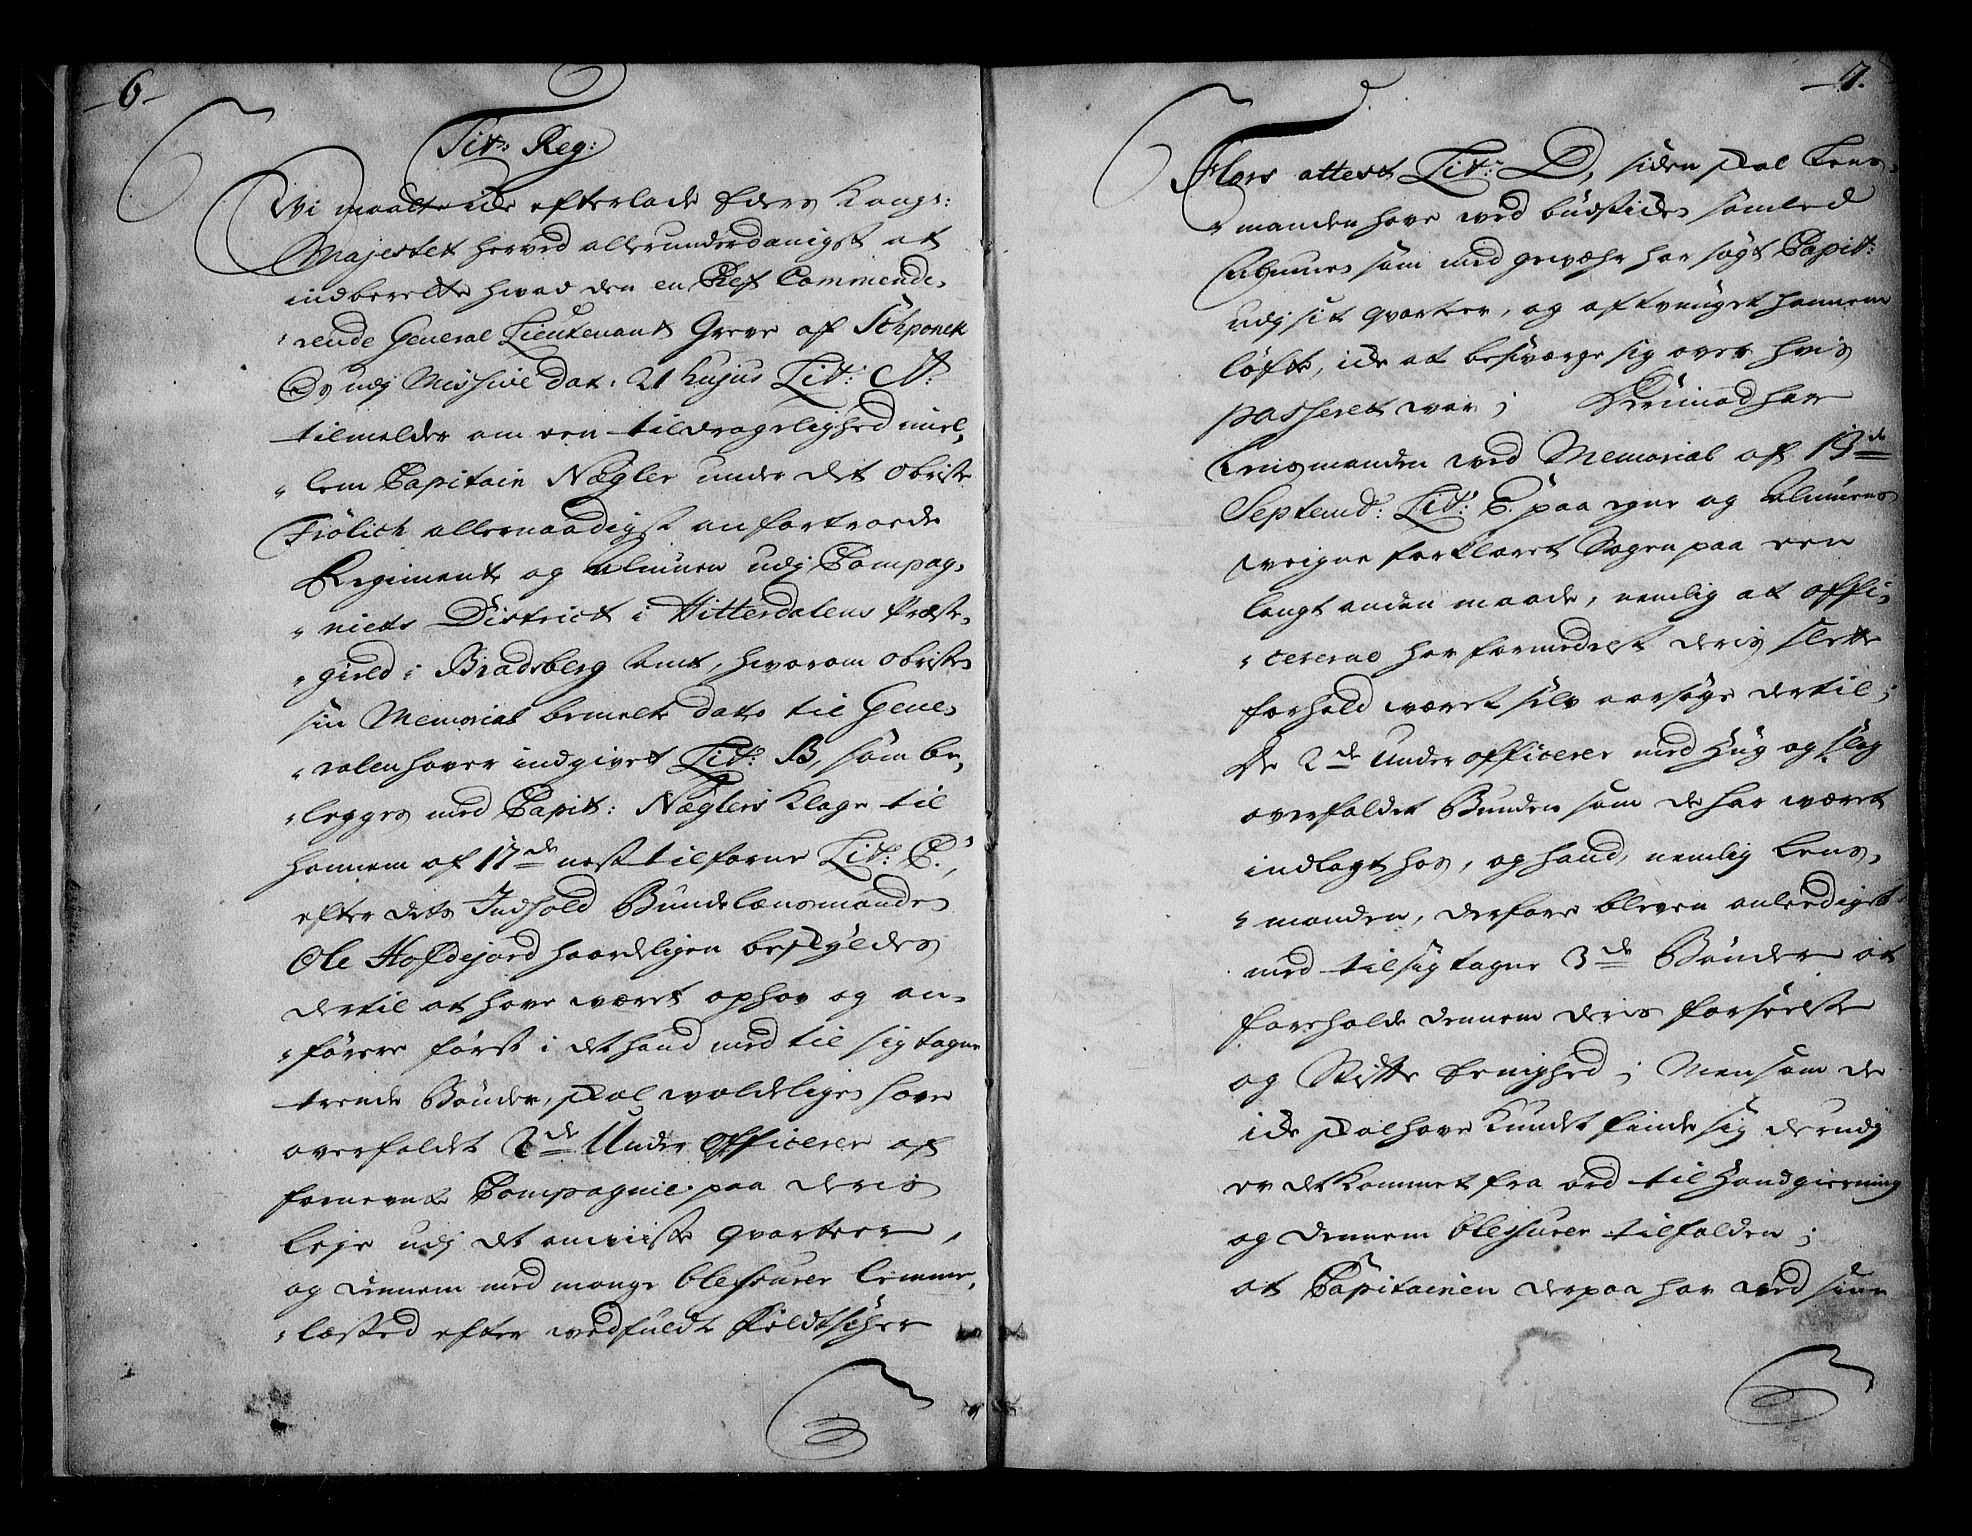 -6-
Tit: Reg:
Wi maatte icke efterlade Eders Kongl:
Majestet herved allerunderdanigst at
indberette hvad den en Chef Commende,
„rende General Lieutenant Greve af Schponek
Os udj Missive dat: 21 hujus Lit: A:
tilmelder om een tildragelighed imel,
„lem Capitain Nægler under det Obriste
Frölich allernaadigst anfortroede
Regiment og Almuen udj Compag,
„niets District i Hitterdalens Præste,
„gield i Bradsberg Amt, hvorom Obristen
sin Memorial bemelte dato til Gene,
„ralen haver indgivet Lit: B, som be,
„legges med Capit: Næglers Klage til
hannem af 17de nest tilforne Lit: C.,
efter dets Indhold Bundelænsmanden
Ole Hofdejord haardeligen beskyldes
dertil at have wæret ophav og an,
„förere först i det hand med til sig tagne
trende Bönder, skal woldeligen have
overfaldet 2de Under Officerer af
fornevnte Compagnie paa deris
leje udj det anviiste qvarteer,
og dennem med mange blessurer lemme,
„læsted efter wedfuldt Feldtskier
-7.
Flors attest Lit: D, siden skal Lens,
„manden have wed budstiden samled
Almuen som med gewæhr har søgt Capit:
udj sit qvarteer, og aftvunget hannem
löfte, icke at besværge sig over hvis
passeret war; Derimod har
Lensmanden wed Memorial af 19de
Septemb: Lit: E. paa egne og Almuens
weigne forklaret Sagen paa een
langt anden maade, nemlig at offi,
„cererne har formedelst deris slette
forhold wæret selv aarsage dertil;
De 2de Under officerer med Hug og slag
overfaldet Bunden som de har wæret
indlagt hos, og hand, nemlig Lens,
„manden, derfore bleven anlediget
med til sig tagne 3de Bönder at
foreholde dennem deris forseelse
og Stifte Eenighed; Men som de
icke skal have kundet finde sig derudj
er det kommet fra ord til Handgierning
og dennem blessurer tilfalden;
at Capitainen derpaa har wed sine